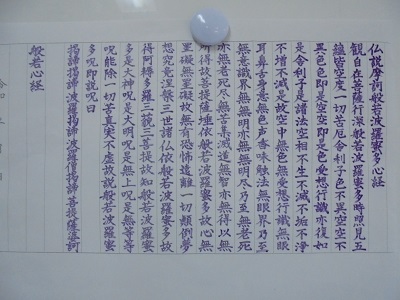 仏説摩訶般若波羅蜜多心経
観自在菩薩行深般若波羅蜜多時照見五
蘊皆空度一切苦厄舎利子色不異空空不
異色色即是空空即是色受想行識亦復如
是舎利子是諸法空相不生不滅不垢不浄
不増不減是故空中無色無受想行識無眼
耳鼻舌身意無色声香味触法無眼界乃至
無意識界無無明亦無無明尽乃至無老死
亦無老死尽無苦集滅道無智亦無得以無
所得故菩提薩埵依般若波羅蜜多故心無
罣礙無罣礙故無有恐怖遠離一切顛倒夢
想究竟涅槃三世諸仏依般若波羅蜜多故
得阿耨多羅三藐三菩提故知般若波羅蜜
多是大神呪是大明呪是無上呪是無等等
呪能除一切苦真実不虚故説般若波羅蜜
多呪即説呪曰
掲諦掲諦波羅掲諦波羅僧掲諦菩提薩婆訶
般若心経
令和